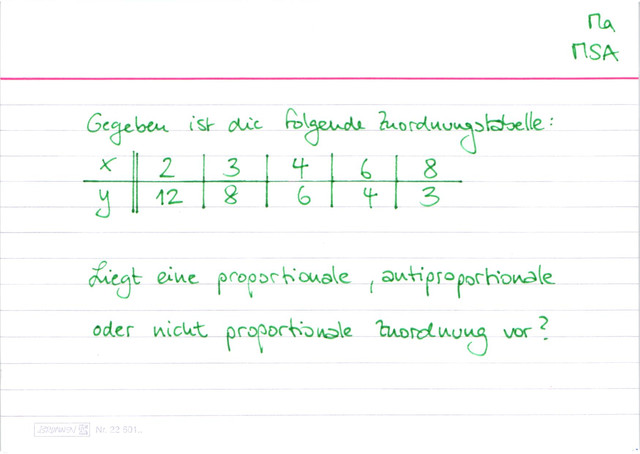 Ma
MSA
Gegeben ist die folgende Zuordnungstabelle:
x 2 3 4 6 8
y 12 8 6 4 3
Liegt eine proportionale, antiproportionale
oder nicht proportionale Zuordnung vor?
Nr. 22 501